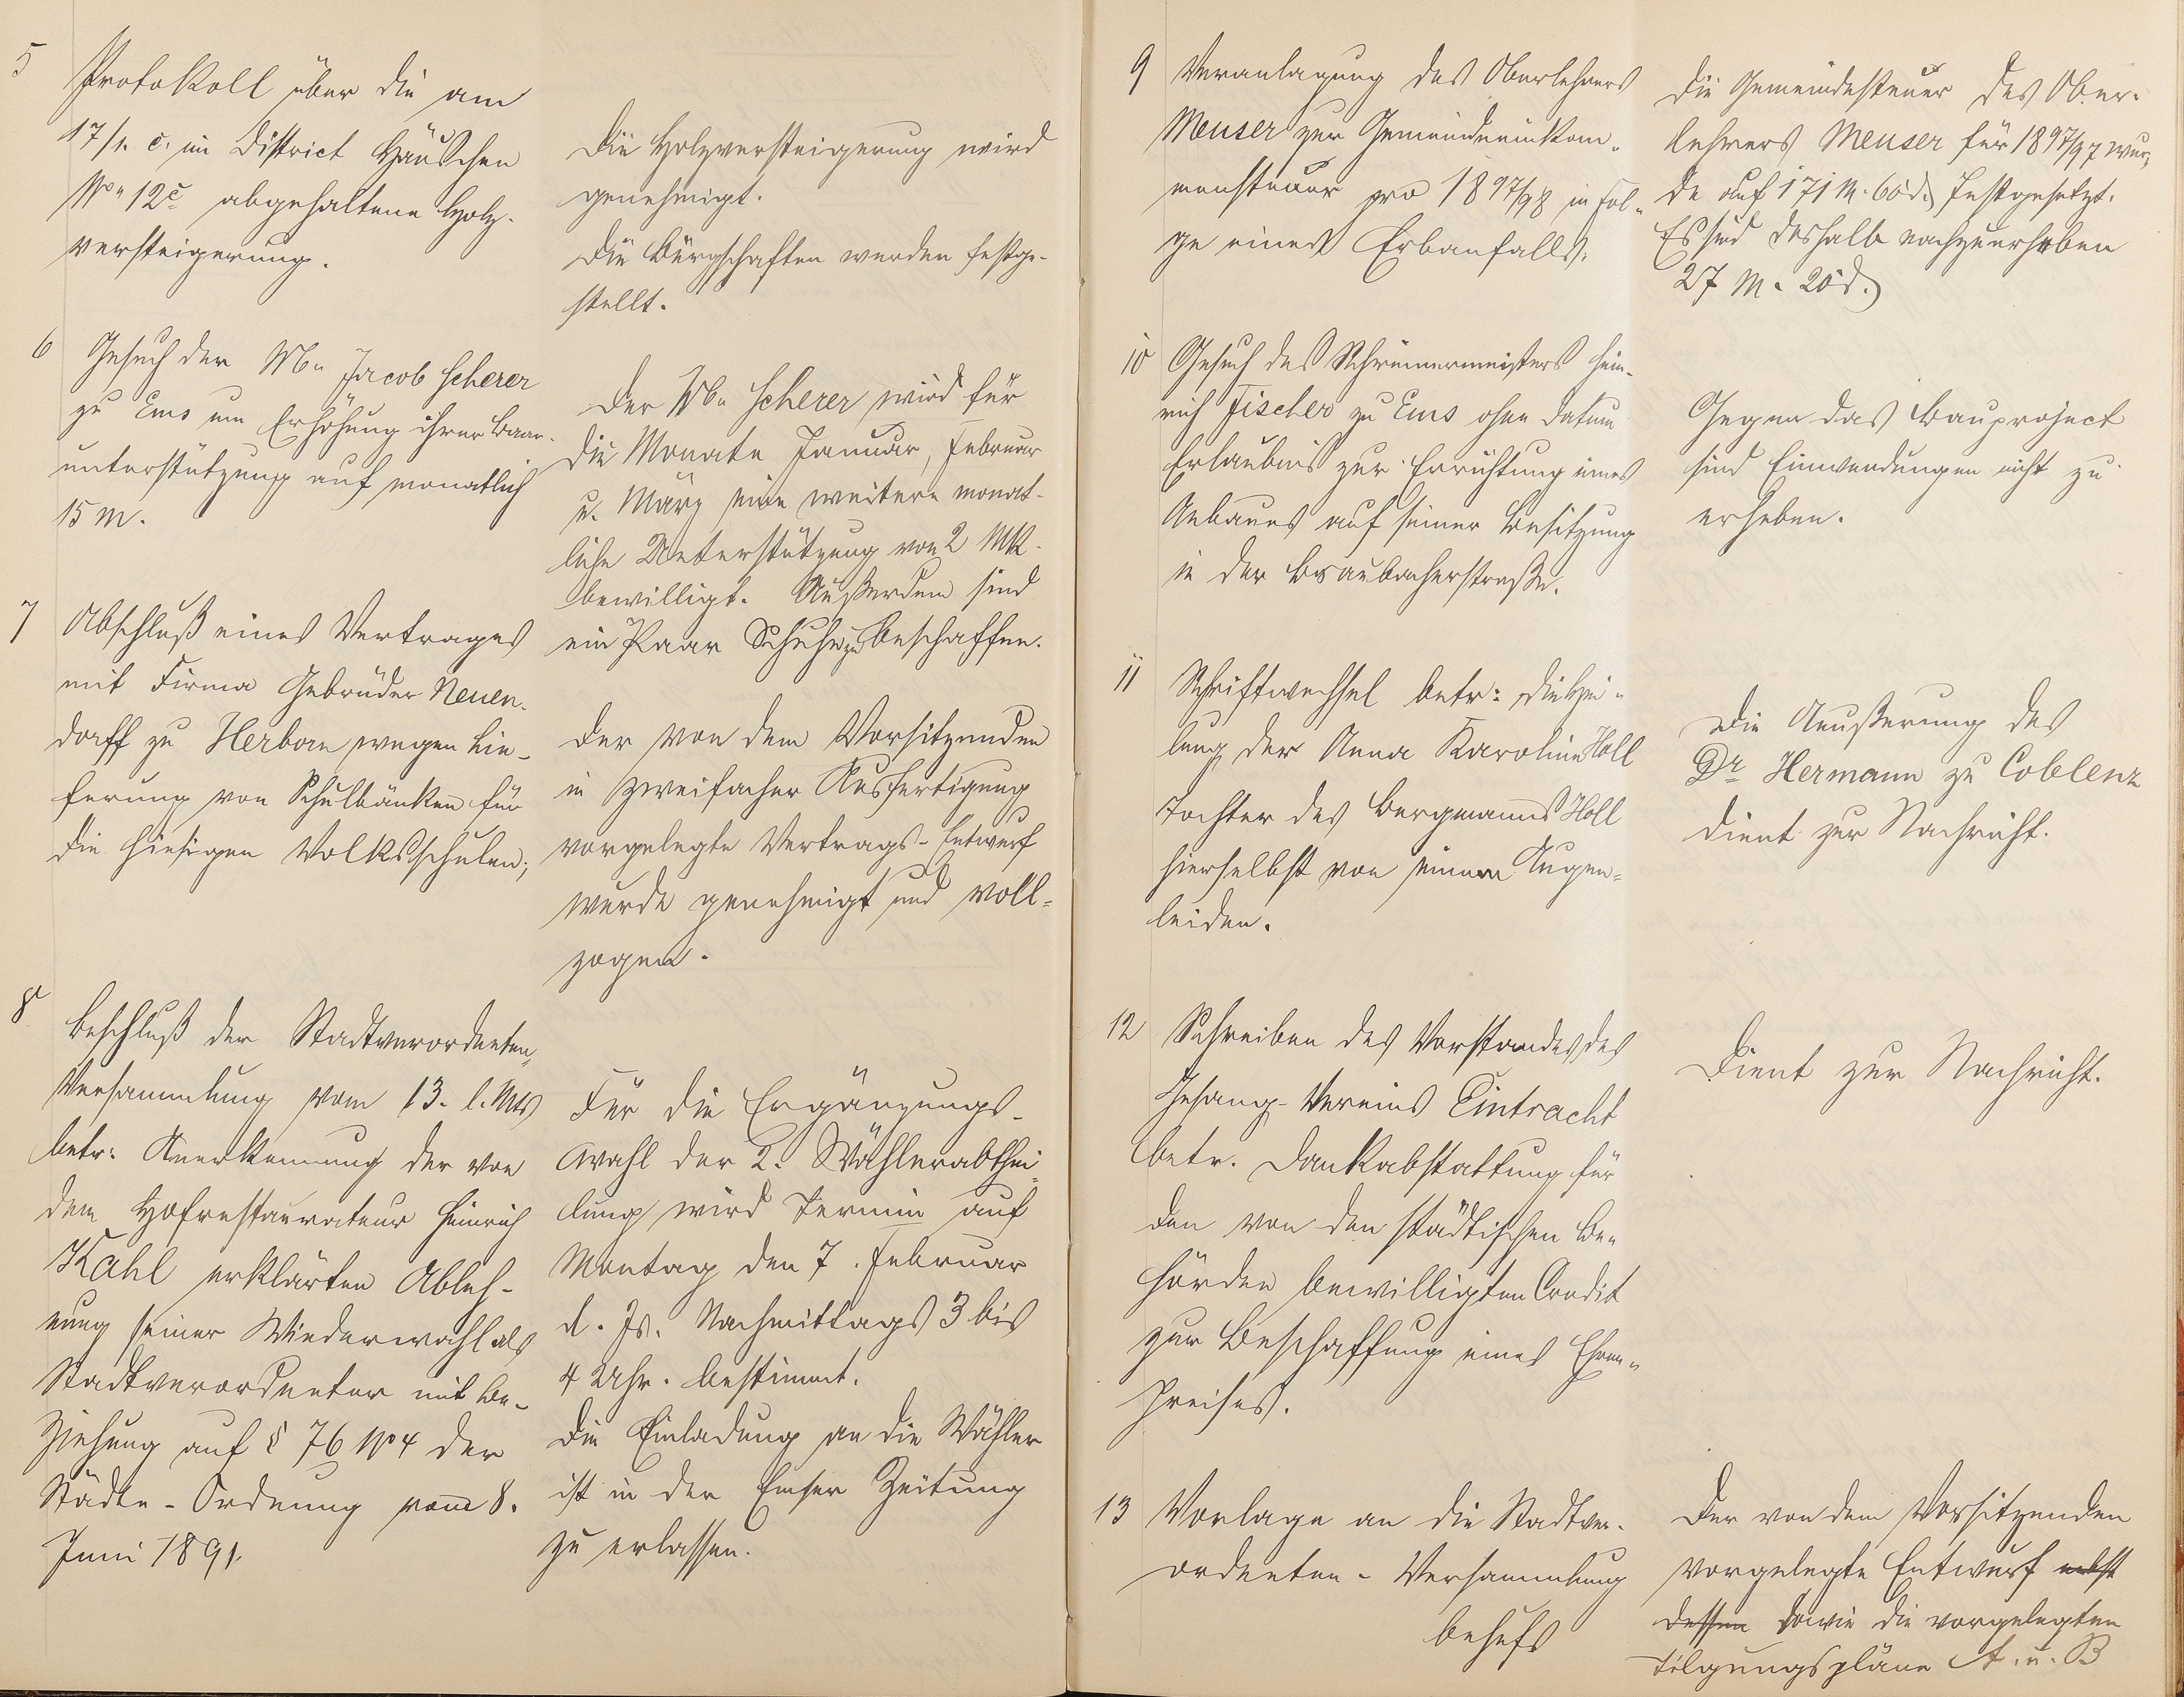 5
Protokoll über die am
17/1. c. im District Häuschen
No. 12c abgehaltene Holz-
versteigerung.
Die Holzversteigerung wird
genehmigt.
Die Bürgschaften werden festge-
stellt.
6
Gesuch der Wb. Jacob Scherer
zu Ems um Erhöhung ihrer Baar-
unterstützung auf monatlich
15 M.
Der Wb. Scherer wird für
die Monate Januar, Februar
u. März eine weitere monat-
liche Unterstützung von 2 Mk.
bewilligt. Außerdem sind
ein Paar Schuhe zu beschaffen.
7
Abschluß eines Vertrages
mit Firma Gebrüder Neuen-
dorff zu Herborn wegen Lie-
ferung von Schulbänken für
die hiesigen Volksschulen;
Der von dem Vorsitzenden
in zweifacher Ausfertigung
vorgelegte Vertrags-Entwurf
wurde genehmigt und voll-
zogen.
8
Beschluß der Stadtverordneten-
Versammlung vom 13. l. Mts
betr: Anerkennung der von
dem Hofrestaurateur Heinrich
Kahl erklärten Ableh-
nung seiner Wiederwahl als
Stadtverordneter mit Be-
ziehung auf § 76 No 4 der
Städte-Ordnung vom 8.
Juni 1891.
Für die Ergänzungs-
wahl der 2. Wählerabthei-
lung wird Termin auf
Montag den 7. Februar
d. Js. Nachmittags 3 bis
4 Uhr. bestimmt.
Die Einladung an die Wähler
ist in der Emser Zeitung
zu erlassen.
9
Veranlagung des Oberlehrers
Meuser zur Gemeindeeinkom-
mensteuer pro 1897/98 in Fol-
ge eines Erbanfalls.
Die Gemeindesteuer des Ober-
lehrers Meuser für 1897/97 wur-
de auf 171 M. 60 d. festgesetzt.
Es sind deshalb nachzuerheben
27 M. 20 d.
10
Gesuch des Schreinermeisters Hein-
rich Fischer zu Ems ohne Datum
Erlaubnis zur Errichtung eines
Anbaues auf seiner Besitzung
in der Braubacherstraße.
Gegen das Bauproject
sind Einwendungen nicht zu
erheben.
11
Schriftwechsel betr: die Hei-
lung der Anna Karoline Holl
Tochter des Bergmanns Holl
hierselbst von einem Augen-
leiden.
Die Aeußerung des
Dr Hermann zu Coblenz
dient zur Nachricht.
12
Schreiben des Vorstandes des
Gesang-Vereins Eintracht
betr. Dankabstattung für
den von den städtischen Be-
hörden bewilligten Credit
zur Beschaffung eines Ehren-
preises.
Dient zur Nachricht.
13
Vorlage an die Stadtver-
ordneten-Versammlung
behufs
Der von dem Vorsitzenden
vorgelegte Entwurf nebst
dessen sowie die vorgelegten
Tilgungspläne A. u. B